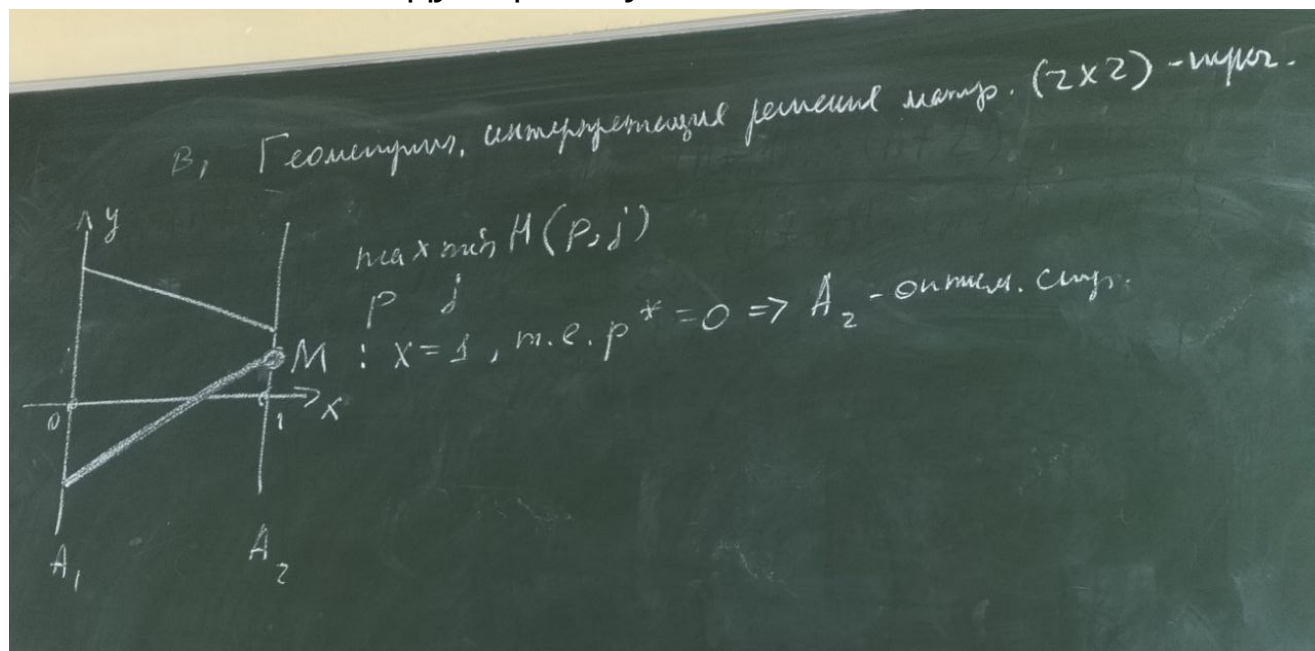 B, Геометрич. интерпретация решения матр. (2x2) - игры.
y
max min H(p,j)
p j
M : x=1, т.е. p* =0 => A₂ - оптим. стр.
0 1 x
A₁ A₂